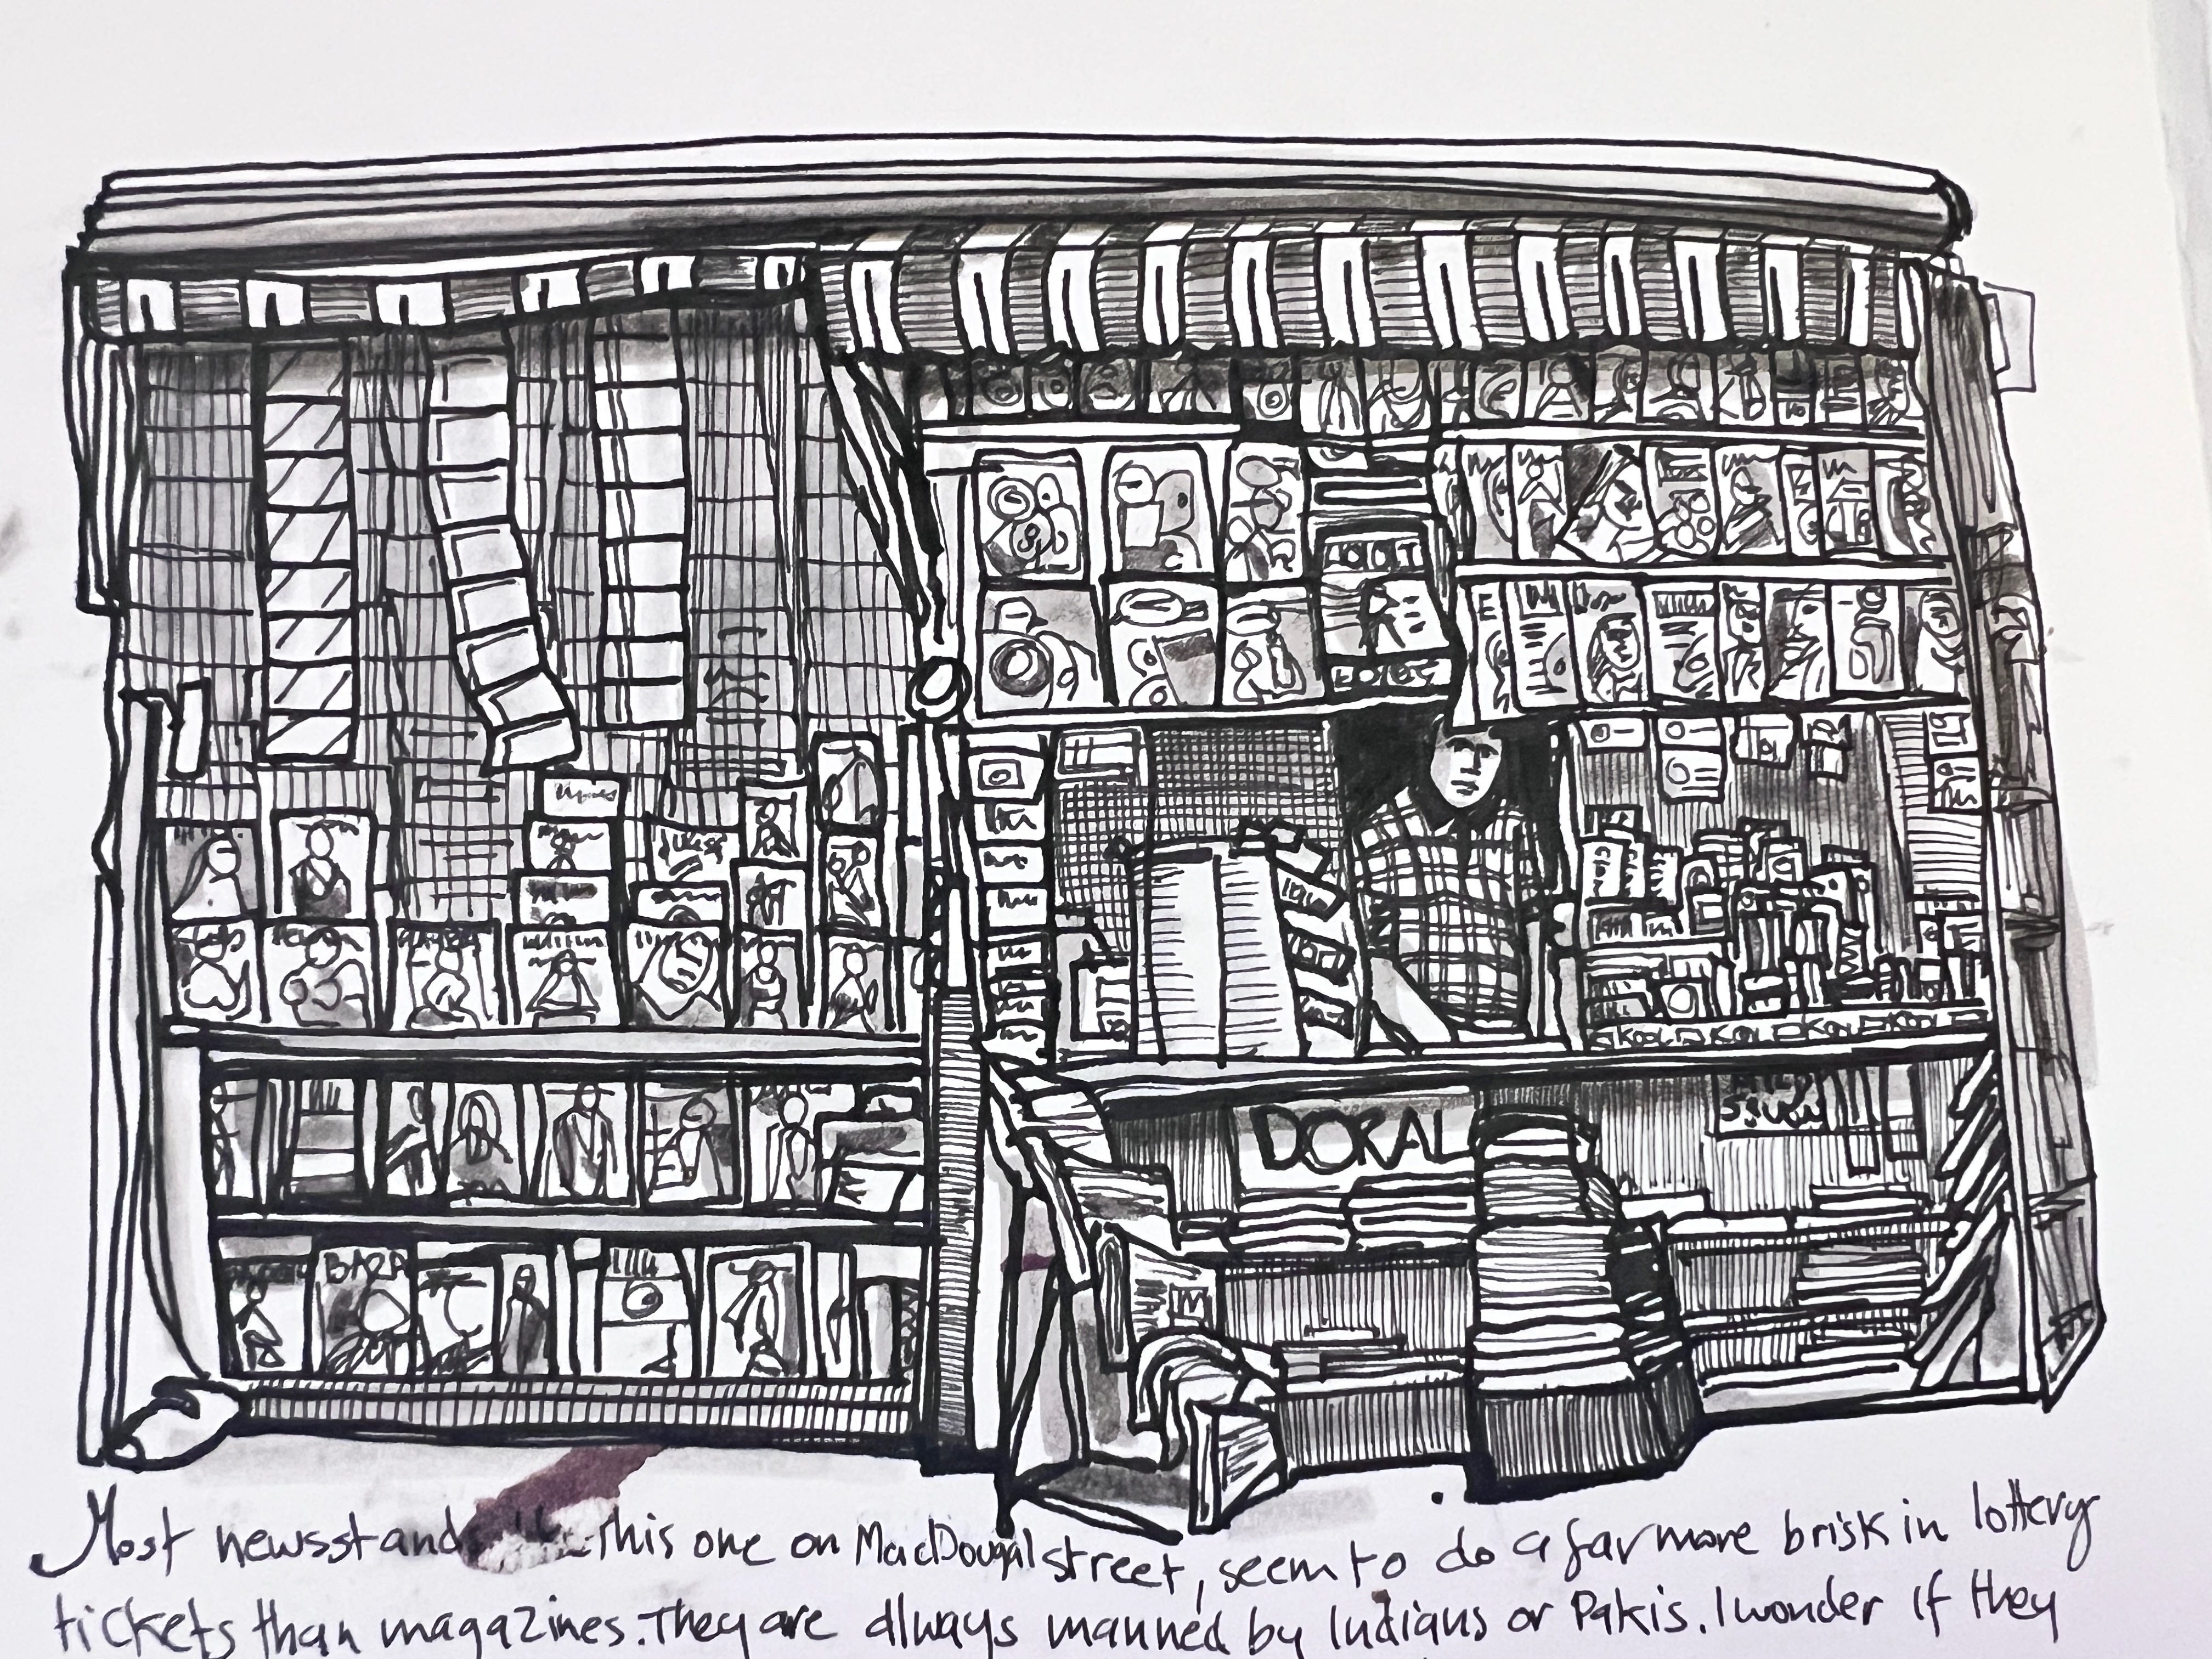 BAZA
KOOL KOOL KOOL KOOL
DORAL
Most newsstands this one on MacDougal street, seem to do a far more brisk in lottery
tickets than magazines. They are always manned by Indians or Pakis. I wonder if they